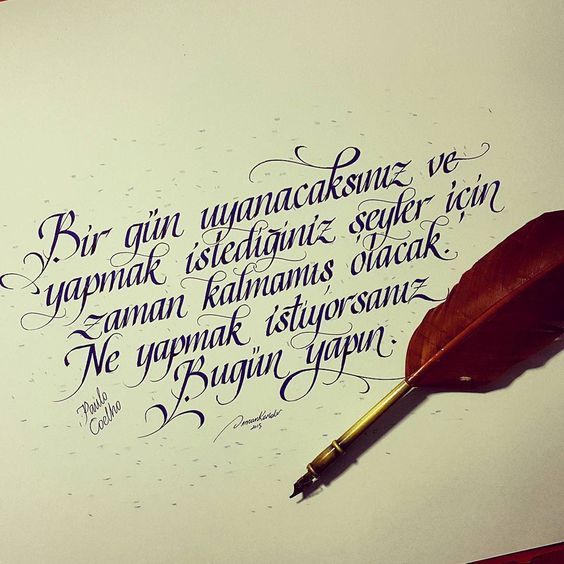 Bir gün uyanacaksınız ve
yapmak istediğiniz şeyler için
zaman kalmamış olacak.
Ne yapmak istiyorsanız
Bugün yapın.
Paulo
Coelho
2013